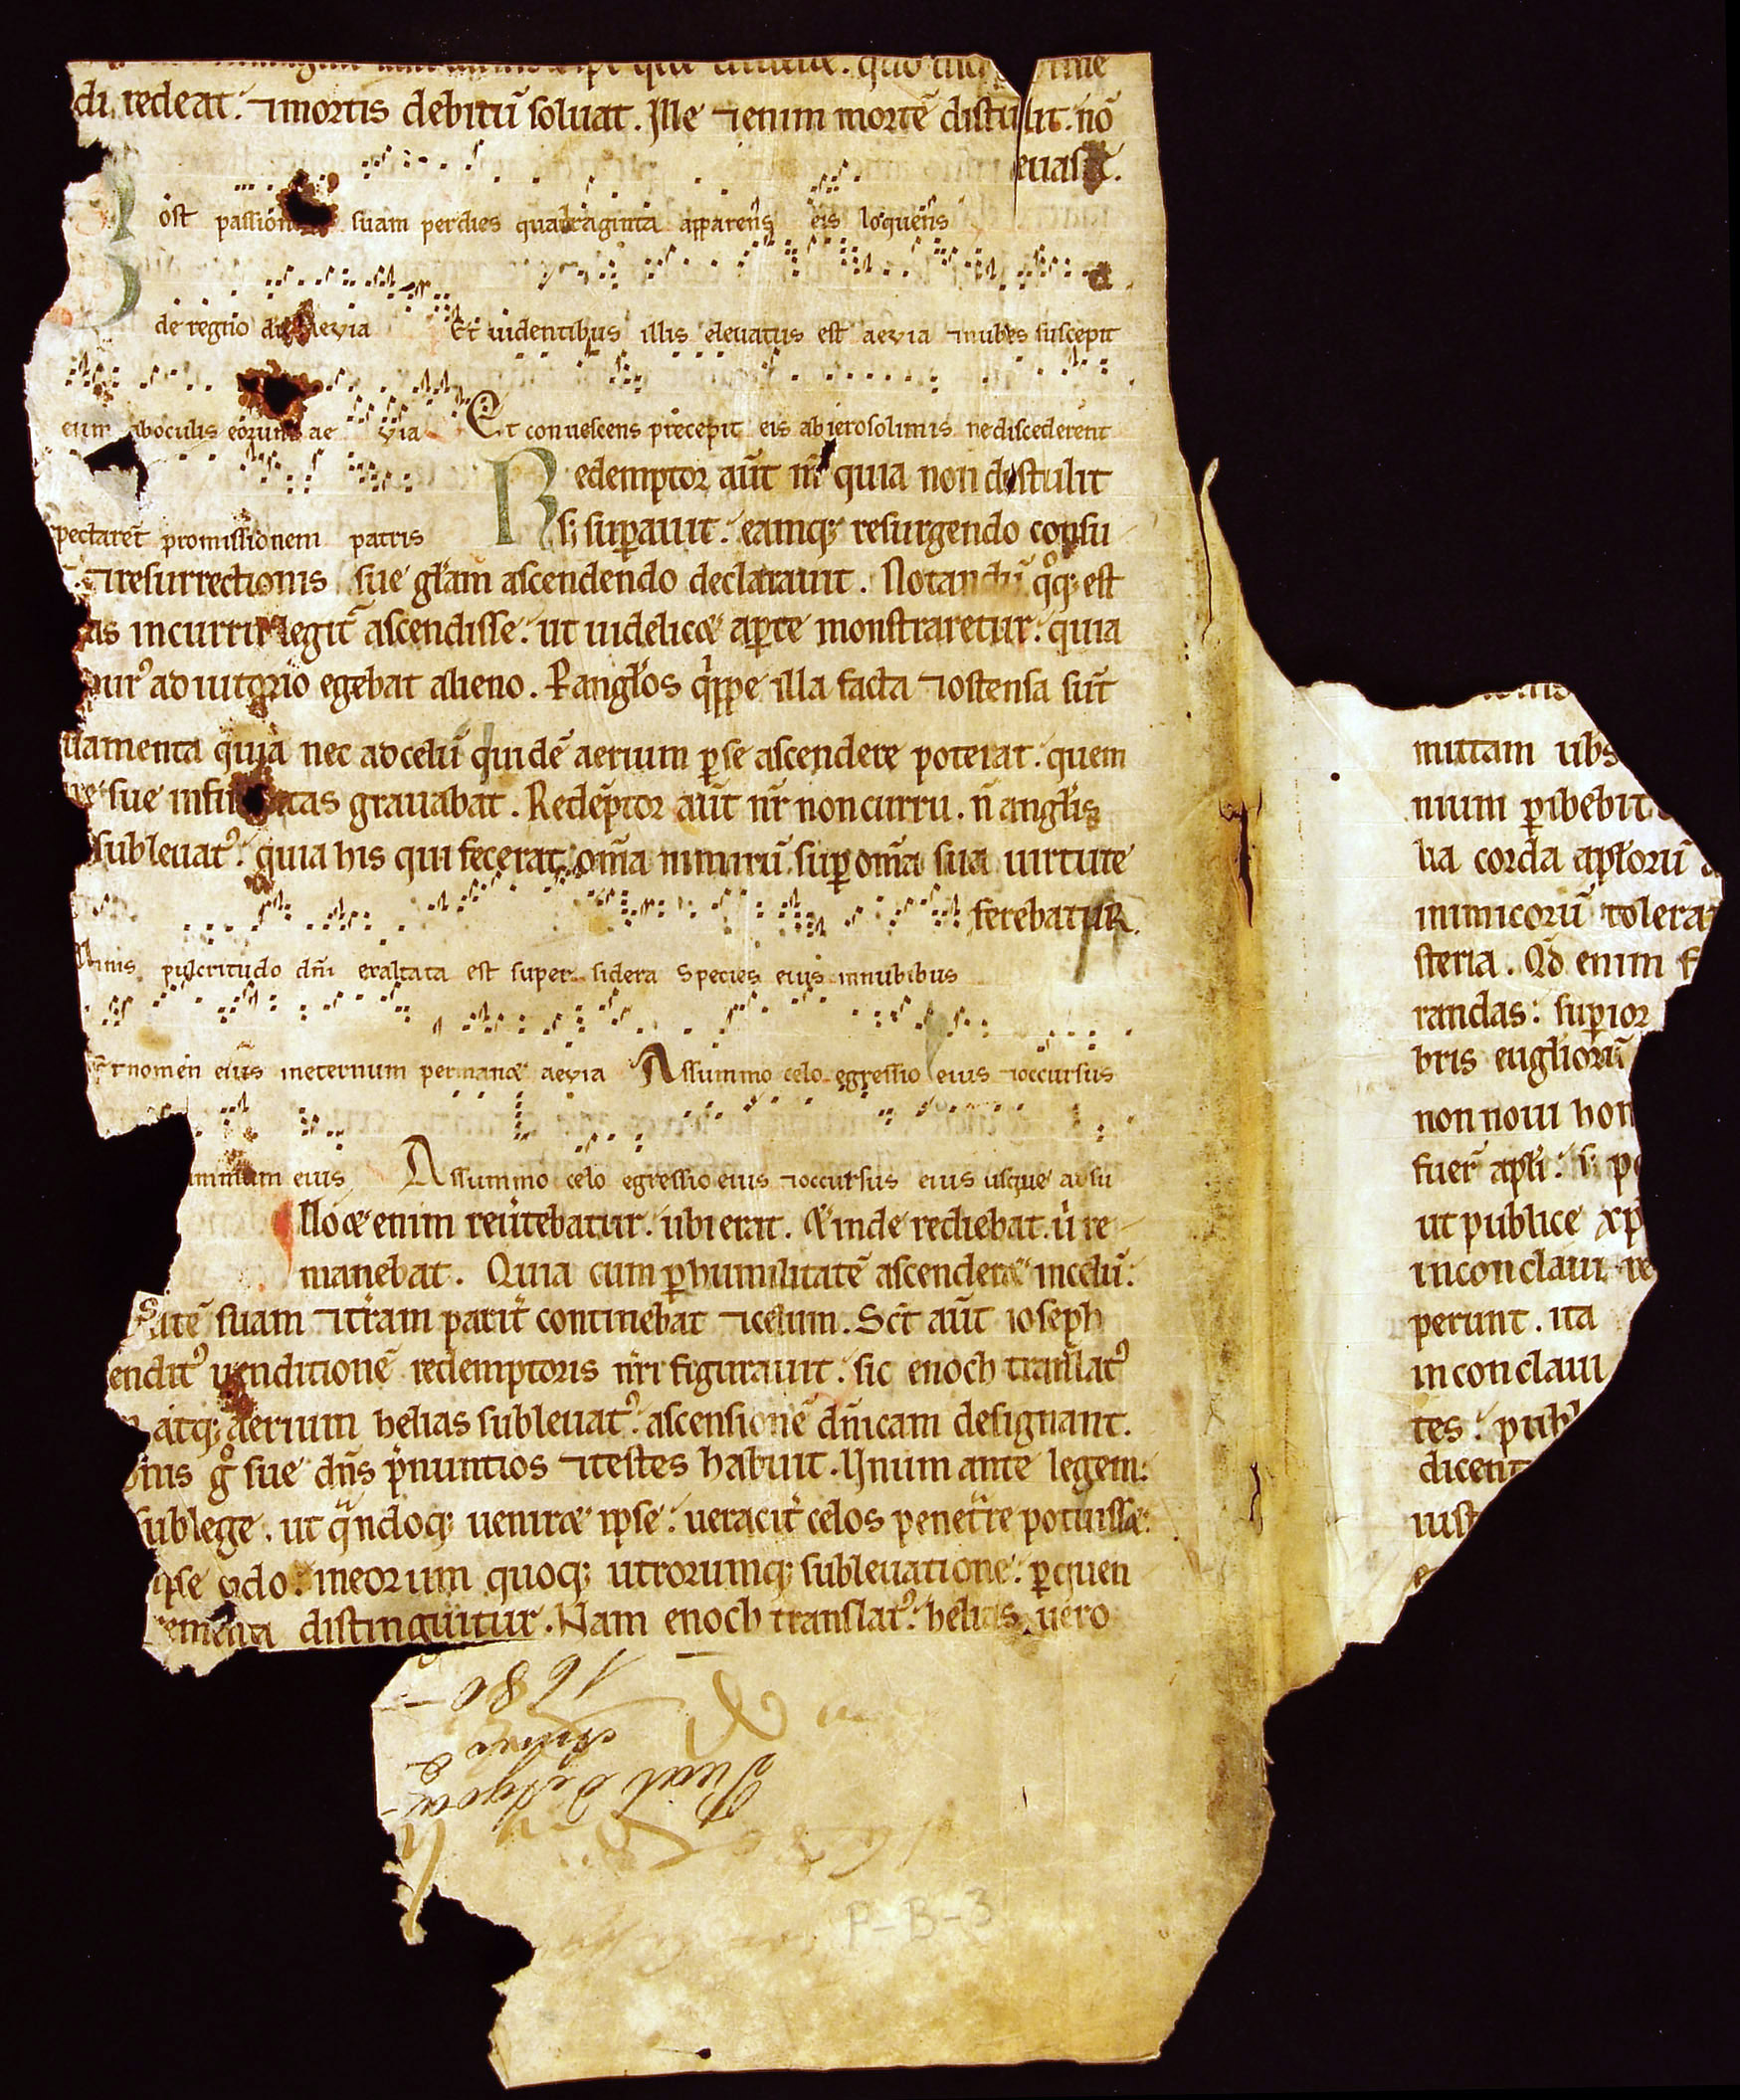 di redeat. ⁊ mortis debitū soluat. Ille ⁊enim mortē distulit. nō
euasit.
ost passion suam per dies quadraginta apparens eis loquens
de regno dei aeuia Et uidentibus illis eleuatus est aeuia ⁊nubes suscepit
eum aboculis eorum ae uia Et conuescens precepit eis abierosolimis nediscederent
Redemptor aūt nr̄ quia non distulit
pectarēt promissionem patris
s; sup̄auit. eamq; resurgendo consu
⁊resurrectionis sue gl̄am ascendendo declarauit. Notandū qͦq; est
as incurru legit᷑ ascendisse. ut uidelicet aꝑte monstraretur. quia
pur᷒ adiutorio egebat alieno. P̱ angl̄os qͥppe illa facta ⁊ostensa sūt
iamenta quia nec adcelū quidē aerium ꝑse ascendere poterat. quem
re sue infir itas grauabat. Redēptor aūt nr̄ noncurru. n̄ angl̄is
subleuat᷒. quia his qui fecerat om̄a nimirū suꝑ om̄a sua uirtute
ferebatuR.
imis pulcritudo dn̄i exaltata est super sidera Species eius innubibus
Et nomen eius ineternum permanet aeuia Assummo celo egressio eius ⁊occursus
mmum eius Assummo celo egressio eius ⁊occursus eius usque adsu
lloc enim reūtebatur. ubi erat. & inde rediebat. ū re
manebat. Quia cum ꝑhumilitatē ascenderet incelū.
itatē suam ⁊tr̄am parit᷑ continebat ⁊celum. Sc̄t aūt ioseph
endit᷒ uenditionē redemptoris nr̄i figurauit. sic enoch translat᷒
atq; aerium helias subleuat᷒. ascensionē dn̄icam designant.
onis gͦ sue dn̄s p̄nuntios ⁊testes habuit. Unum ante legem.
sublege. ut qͣndoq; ueniret ipse. ueracit᷑ celos penetͣre potuisset.
ipse ordo. ineorum quoq; utrorumq; subleuatione. ꝑquen
rementa distinguitur. Nam enoch translat᷒. helias uero
1680
P-B-3
mittam uobs
nium ꝑibebit
ba corda apl̄orū
inimicorū tolera
steria. Qd̄ enim
randas: suꝑior
bris eugliorū
non noui hom
fuer̄ apl̄i. si p
ut publice xp̄
inconclaui re
perunt. ita
inconclaui
tes. publ
dicent
iust